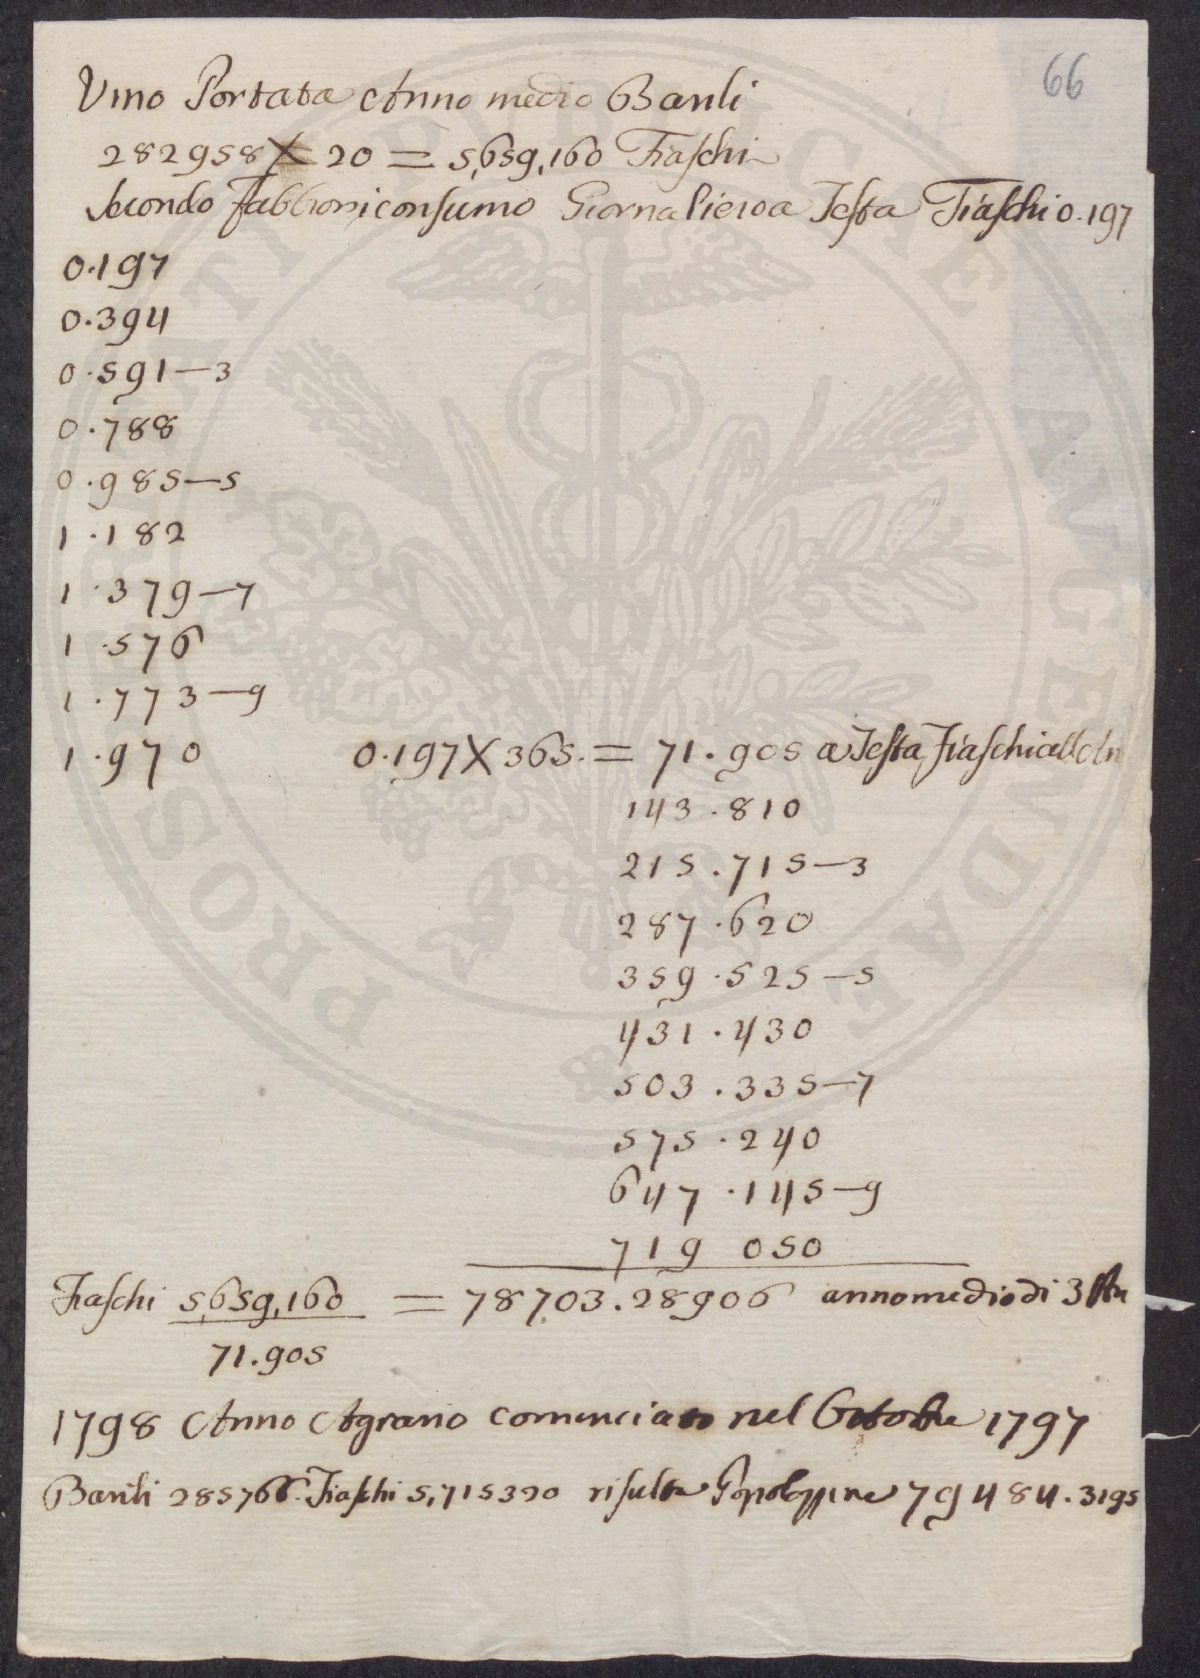 66
Vino Portata Anno medio Barili
282958 X 20 = 5,659,160 Fiaschi
Secondo Fabbroni consumo Giornaliero a Testa Fiaschi 0.197
0.197
0.394
0.591—3
0.788
0.985—5
1.182
1.379—7
1.576
1.773—9
1.970
0.197 X 365. = 71.905 a Testa Fiaschi all
143.810
215.715—3
287.620
359.525—5
431.430
503.335—7
575.240
647.145—9
719 050
Fiaschi 5,659,160 = 78703.28906 anno medio di 3
71.905
1798 Anno Agrario cominciato nel Ottobre 1797
Barili 285766. Fiaschi 5,715320 risulta Popolazione 79484.3195
PROSPERITATI PUBLICAE AUGENDAE